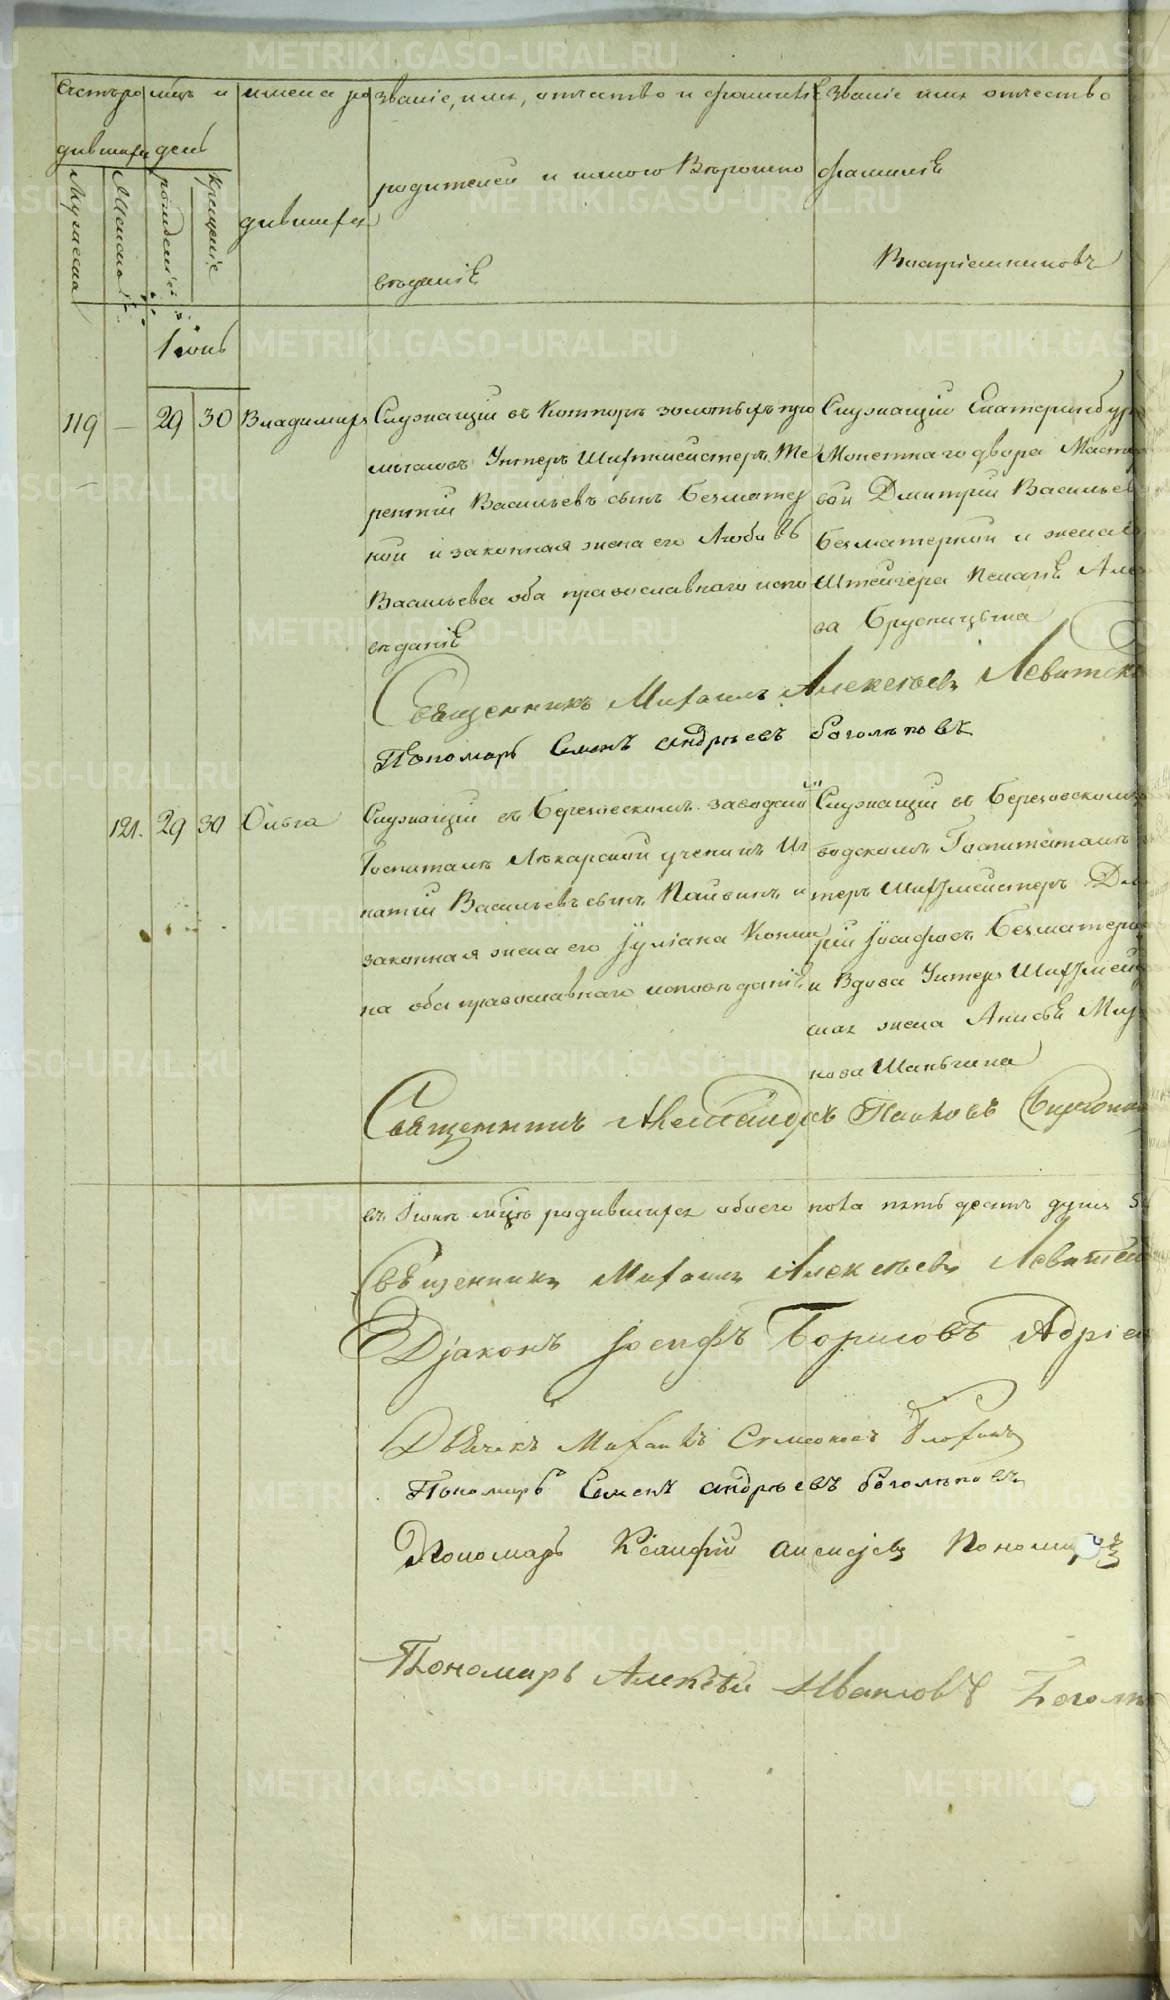 METRIKI.GASO-URAL.RU
Счетъ ро
дившихся
Мужеска
Женска
мцъ и
день
рожденіе
крещеніе
имена ро
дившихся
званіе, имя, отчество и фамиліѣ
родителей и какого Вѣроиспо
вѣданіѣ
Званіе имя отчество
фамиліѣ
Воспріемниковъ
Іюнь
119 — 29 30 Владимиръ
Служащій въ Конторѣ золотыхъ про
мысловъ Унтеръ Шихтмейстеръ Те
рентій Васильевъ сынъ Безматер
ной и законная жена его Любовь
Васильева оба православнаго испо
вѣданіѣ
Служащій Екатеринбур
Монетнаго двора Масте
вой Дмитрій Васильев
Безматерной и жена
Штейгера Пелагѣ Але
ва Брусницына
Священникъ Михаилъ Алексѣевъ Левитск
Пономарь Семенъ Андрѣевъ Боголѣповъ
121. 29 30 Ольга
Служащій въ Березовскомъ заводском
Госпиталѣ Лѣкарскій ученикъ Иг
натій Васильевъ сынъ и
законная жена его Іуліана
на оба православнаго исповѣданіѣ
Служащій въ Березовскомъ
водскомъ Госпиталѣ
теръ Шихтмейстеръ Дм
рій Іосифовъ Безматерн
и Вдова Унтеръ Шихтмей
жена Анисьѣ Ми
нова Шаньгина
Священникъ Александръ
въ Іюнѣ мцѣ родившихся обоего пола пять десятъ душъ
Священникъ Михаилъ Алексѣевъ Левитск
Діаконъ Іосифъ Борисовъ
Дьячекъ Михаилъ Симеоновъ
Пономарь Семенъ Андрѣевъ Боголѣповъ
Пономарь Алексѣевъ
Пономарь Алексѣй Ивановъ Боголѣ